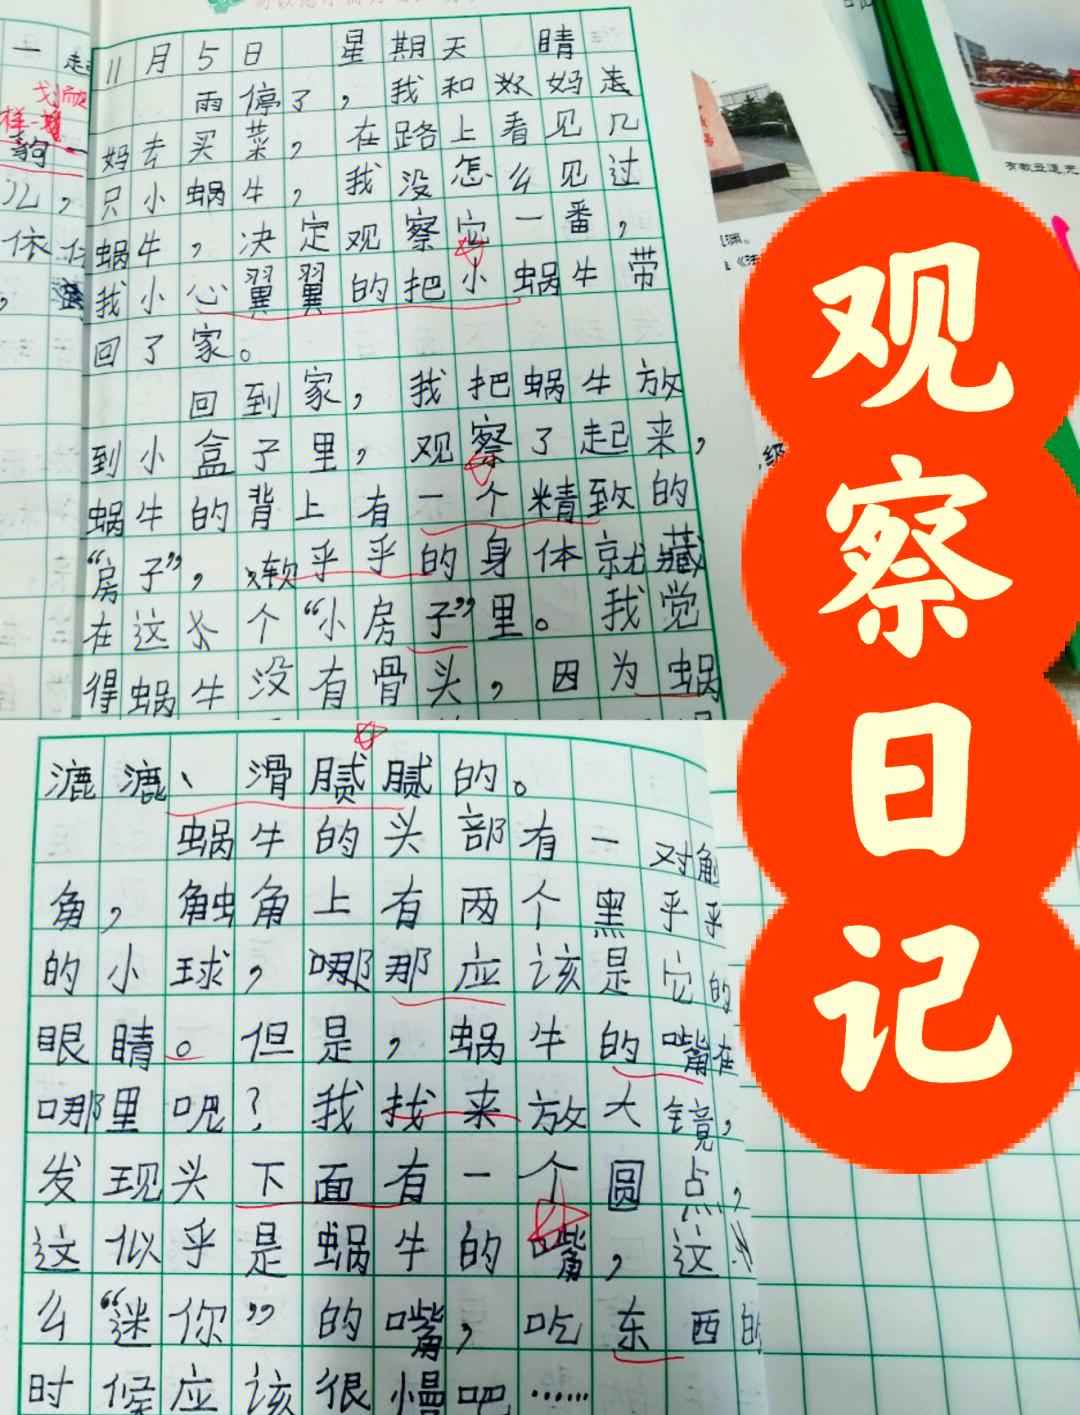 11月5日 星期天 晴
雨停了，我和妈妈去买菜，在路上看见几
只小蜗牛，我没怎么见过
蜗牛，决定观察它一番，
我小心翼翼的把小蜗牛带
回了家。
回到家，我把蜗牛放
到小盒子里，观察了起来，
蜗牛的背上有一个精致的
“房子”，软乎乎的身体就藏
在这个“小房子”里。我觉
得蜗牛没有骨头，因为蜗
漉漉、滑腻腻的。
蜗牛的头部有一对触
角，触角上有两个黑乎乎
的小球，那应该是它的
眼睛。但是，蜗牛的嘴在
哪里呢？我找来放大镜，
发现头下面有一个圆点，
这似乎是蜗牛的嘴，这
么“迷你”的嘴，吃东西的
时候应该很慢吧……
观察日记